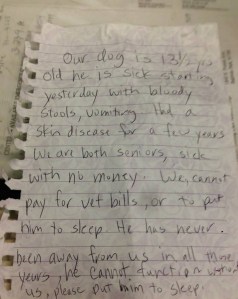 Our dog is 13 1/2 yrs
old he is sick starting
yesterday with bloody
stools, vomiting. Had a
skin disease for a few years
We are both seniors, sick
with no money. We cannot
pay for vet bills, or to put
him to sleep. He has never
been away from us in all those
years, he cannot function without
us, please put him to sleep.